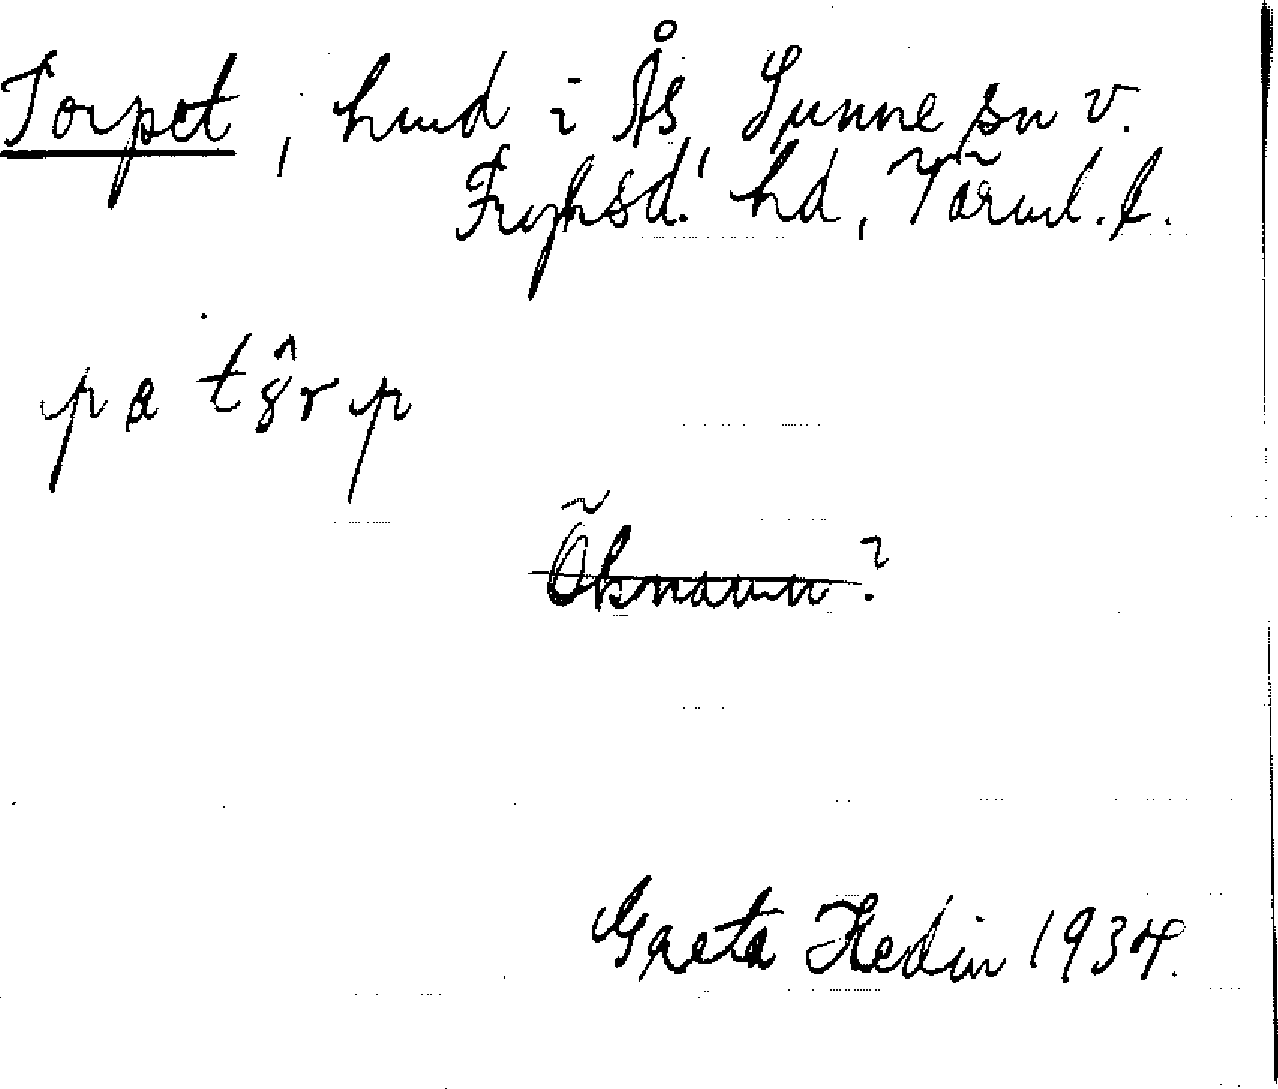 Torpet, hmd i Ås, Sunne sn v.
Fryksd. hd, Värml. l.
pa tôrp
Öknamn?
Greta Hedin 1934.